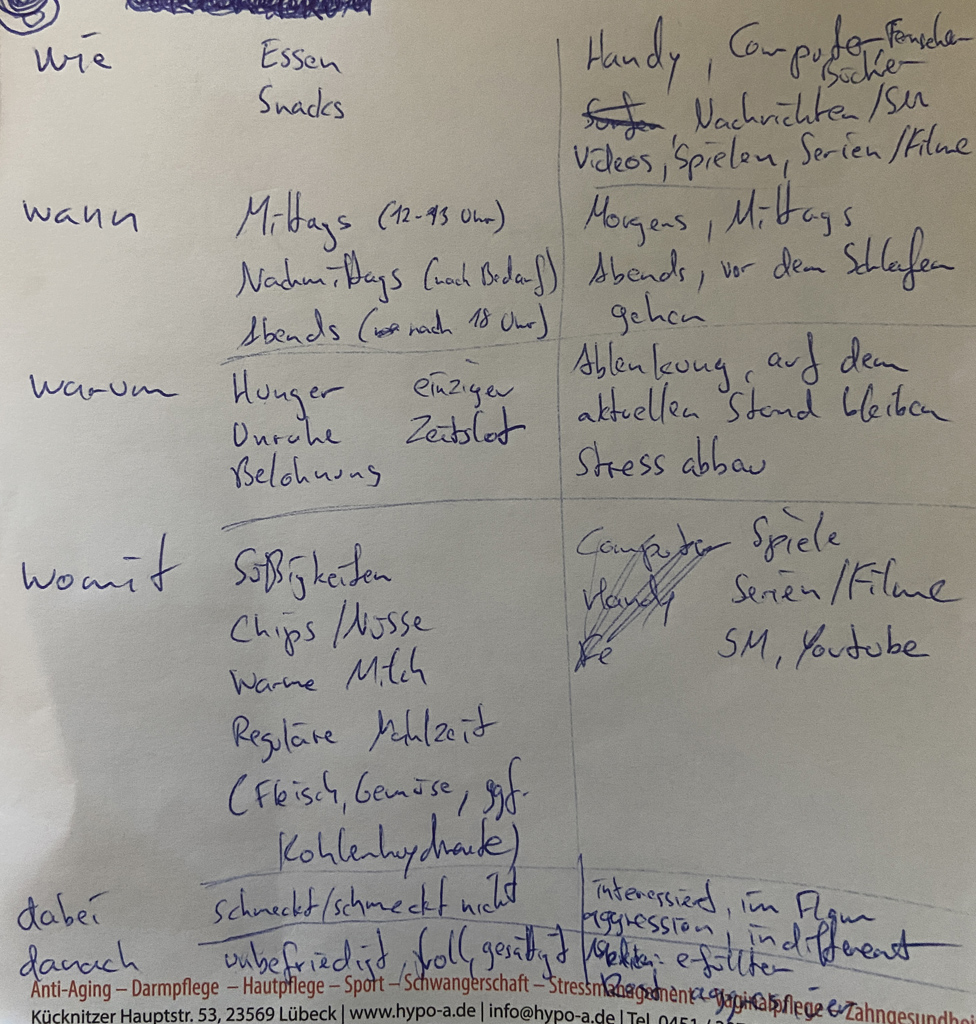 wie Essen Handy, Computer Fernseher
Bücher
Snacks Nachrichten/SM
Videos, Spielen, Serien/Filme
wann Mittags (12-13 Uhr) Morgens, Mittags
Nachmittags (nach Bedarf) Abends, vor dem Schlafen
Abends (nach 18 Uhr) gehen
warum Hunger einziger Ablenkung, auf dem
Unruhe Zeitslot aktuellen Stand bleiben
Belohnung Stress abbau
womit Süßigkeiten Computer Spiele
Chips/Nüsse Handy Serien/Filme
Warme Milch Fe SM, Youtube
Reguläre Mahlzeit
(Fleisch, Gemüse, ggf.
Kohlenhydrate)
dabei schmeckt/schmeckt nicht interessiert, im Flow
aggression, indifferent
danach unbefriedigt, voll, gesättigt erfüllter
Anti-Aging – Darmpflege – Hautpflege – Sport – Schwangerschaft – Stressmanagement – Vaginalpflege – Zahngesundhei
Kücknitzer Hauptstr. 53, 23569 Lübeck | www.hypo-a.de | info@hypo-a.de | Tel. 0451